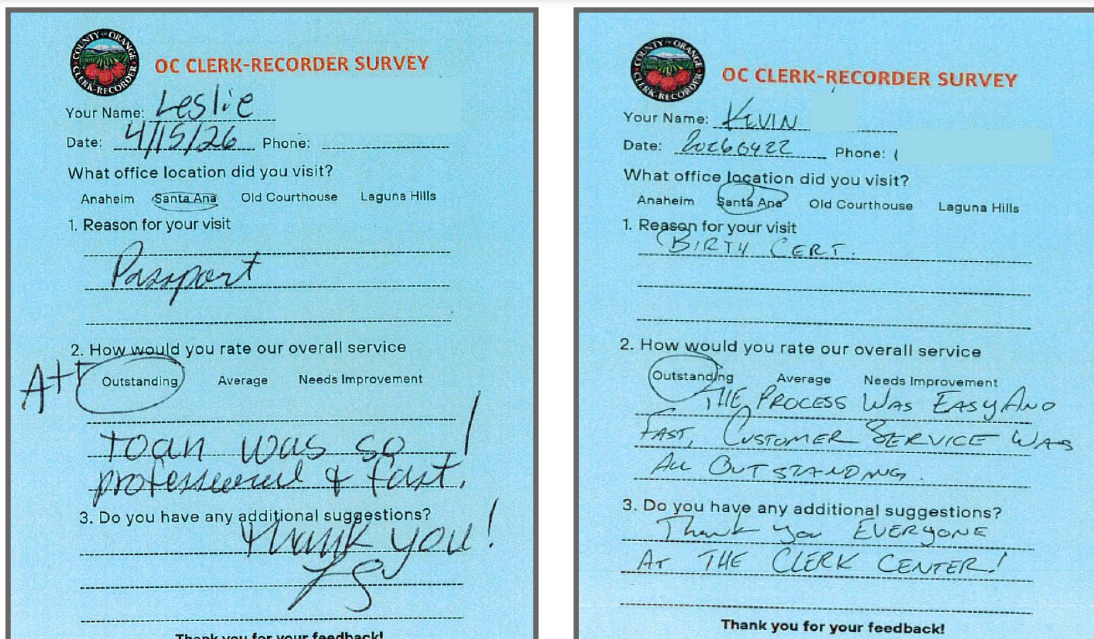 COUNTY OF ORANGE
CLERK-RECORDER
OC CLERK-RECORDER SURVEY
Your Name: Leslie
Date: 4/15/26 Phone:
What office location did you visit?
Anaheim Santa Ana Old Courthouse Laguna Hills
1. Reason for your visit
Passport
2. How would you rate our overall service
A++
Outstanding Average Needs Improvement
Toan was so
professional & fast!
3. Do you have any additional suggestions?
Thank you!
Thank you for your feedback!
COUNTY OF ORANGE
CLERK-RECORDER
OC CLERK-RECORDER SURVEY
Your Name: KEVIN
Date: 20260422 Phone: (
What office location did you visit?
Anaheim Santa Ana Old Courthouse Laguna Hills
1. Reason for your visit
BIRTH CERT.
2. How would you rate our overall service
Outstanding Average Needs Improvement
THE PROCESS WAS EASY AND
FAST, CUSTOMER SERVICE WAS
ALL OUTSTANDING.
3. Do you have any additional suggestions?
Thank you EVERYONE
AT THE CLERK CENTER!
Thank you for your feedback!